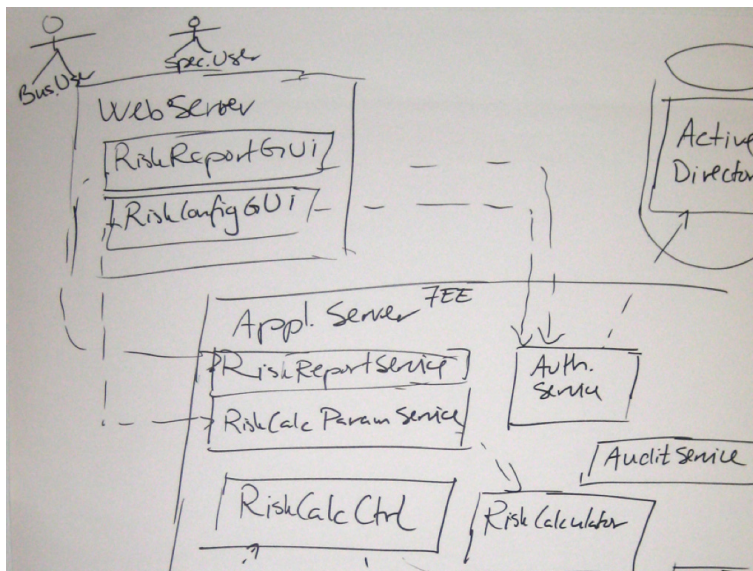 Bus.User
Spec.User
WebServer
RiskReportGUi
RiskConfigGUi
Active
Director
Appl. Server JEE
RiskReportService
RiskCalc Param Service
Auth.
Service
Audit Service
RiskCalcCtrl
RiskCalculator